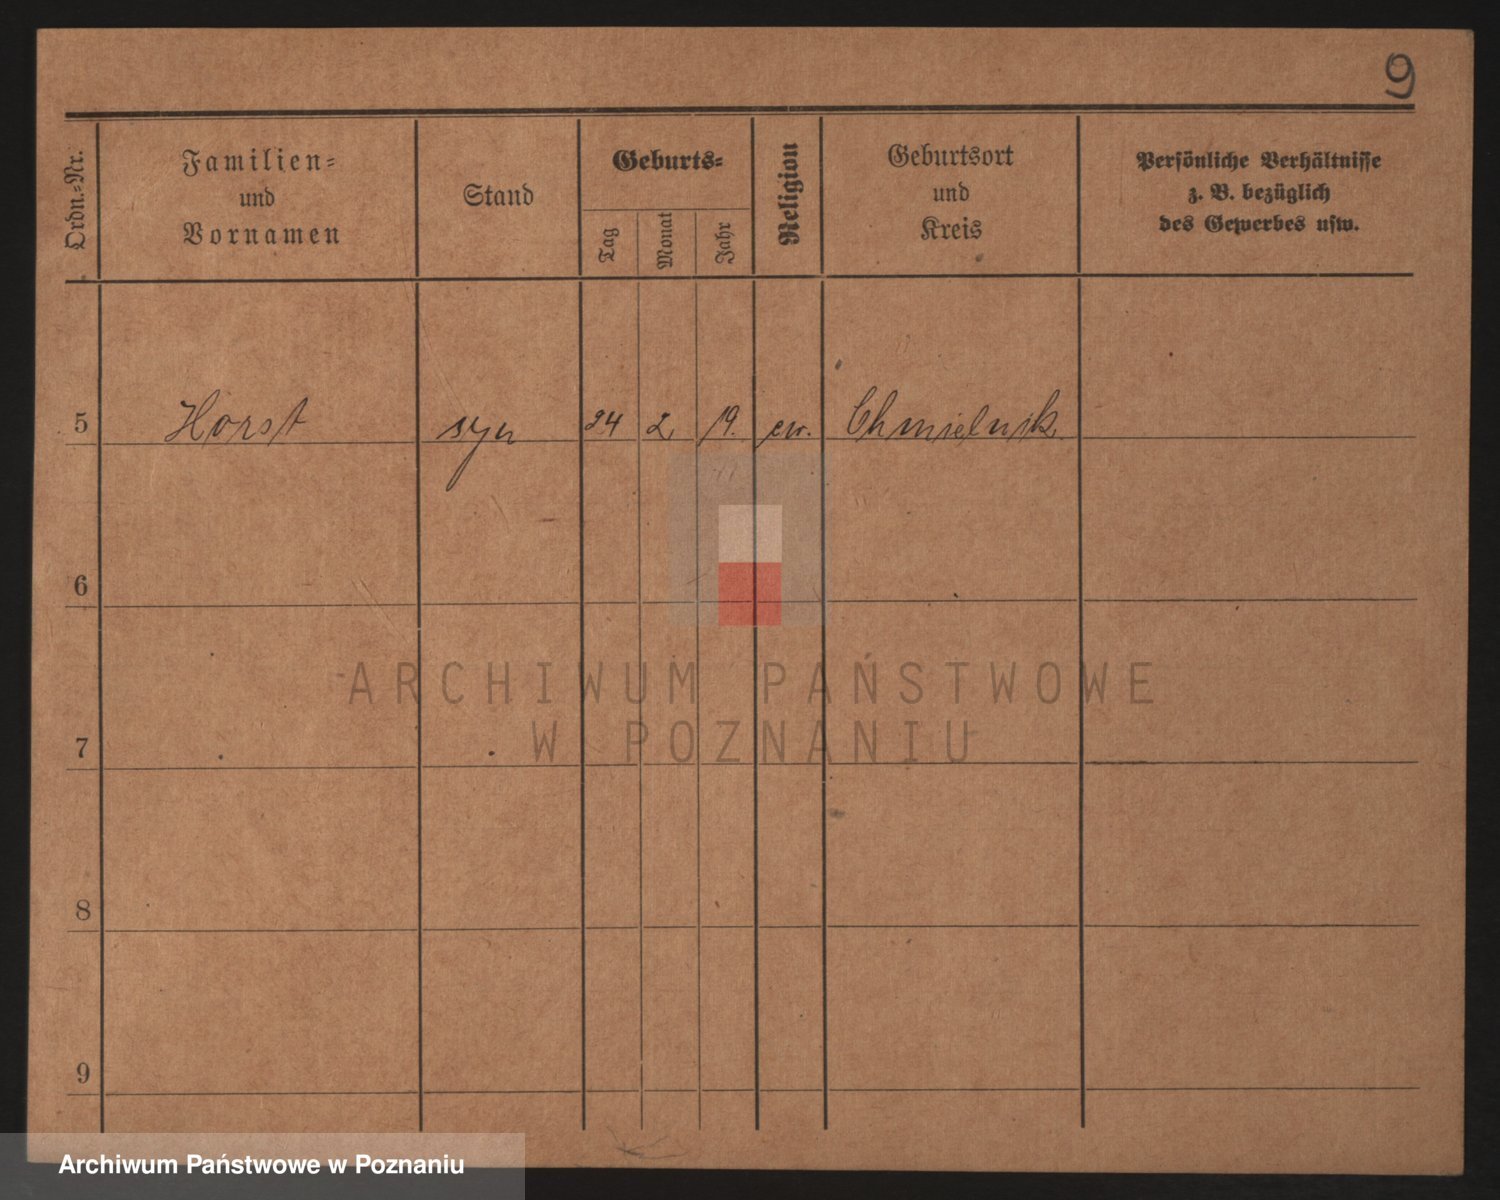 9
Ordn.-Nr.
Familien-
und
Vornamen
Stand
Geburts-
Tag
Monat
Jahr
Religion
Geburtsort
und
Kreis
Persönliche Verhältnisse
z. B. bezüglich
des Gewerbes usw.
5 Horst syn 24 2 19. ew. Chmielnik
6
7
8
9
ARCHIWUM PAŃSTWOWE
W POZNANIU
Archiwum Państwowe w Poznaniu